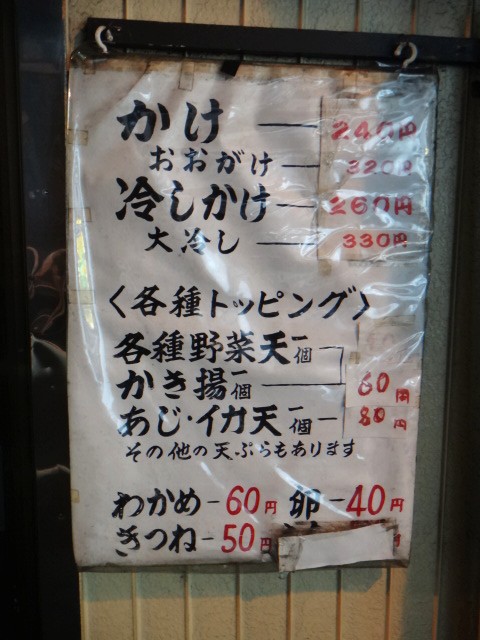 かけ 240円
おおがけ 320円
冷しかけ 260円
大冷し 330円
〈各種トッピング〉
各種野菜天一個
かき揚一個 60円
あじ・イカ天一個 80円
その他の天ぷらもあります
わかめ-60円 卵-40円
きつね-50円